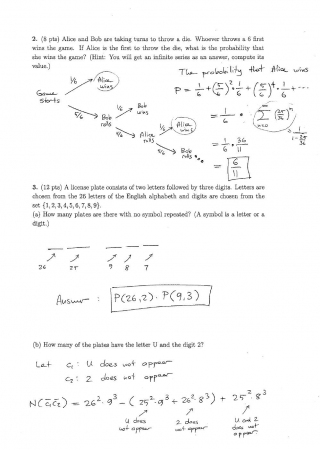 2. (8 pts) Alice and Bob are taking turns to throw a die. Whoever throws a 6 first
wins the game. If Alice is the first to throw the die, what is the probability that
she wins the game? (Hint: You will get an infinite series as an answer, compute its
value.)
The probability that Alice wins
P = 1/6 + (5/6)² · 1/6 + (5/6)⁴ · 1/6 + ...
= 1/6 · ∑ n=0 ∞ (25/36)ⁿ
1/(1 - 25/36)
= 1/6 · 36/11
= 6/11
Game starts
1/6 Alice wins
5/6 Bob rolls
1/6 Bob wins
5/6 Alice rolls
1/6 Alice wins
5/6 Bob rolls ...
3. (12 pts) A license plate consists of two letters followed by three digits. Letters are
chosen from the 26 letters of the English alphabeth and digits are chosen from the
set {1, 2, 3, 4, 5, 6, 7, 8, 9}.
(a) How many plates are there with no symbol repeated? (A symbol is a letter or a
digit.)
26 25 9 8 7
Answer : P(26,2) · P(9,3)
(b) How many of the plates have the letter U and the digit 2?
Let c₁: U does not appear
c₂: 2 does not appear
N(c̅₁c̅₂) = 26² · 9³ − (25² · 9³ + 26² · 8³) + 25² 8³
U does not appear
2 does not appear
U and 2 does not appear